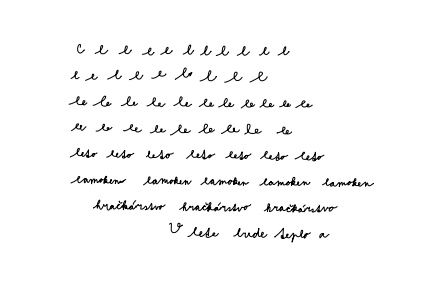 c l l e e l l l l l l
e e l l e e lo l l l
le le le le le le le le le le le
le le le le le le le le le
leto leto leto leto leto leto leto
lamoken lamoken lamoken lamoken lamoken
hračkárstvo hračkárstvo hračkárstvo
V lete bude teplo a